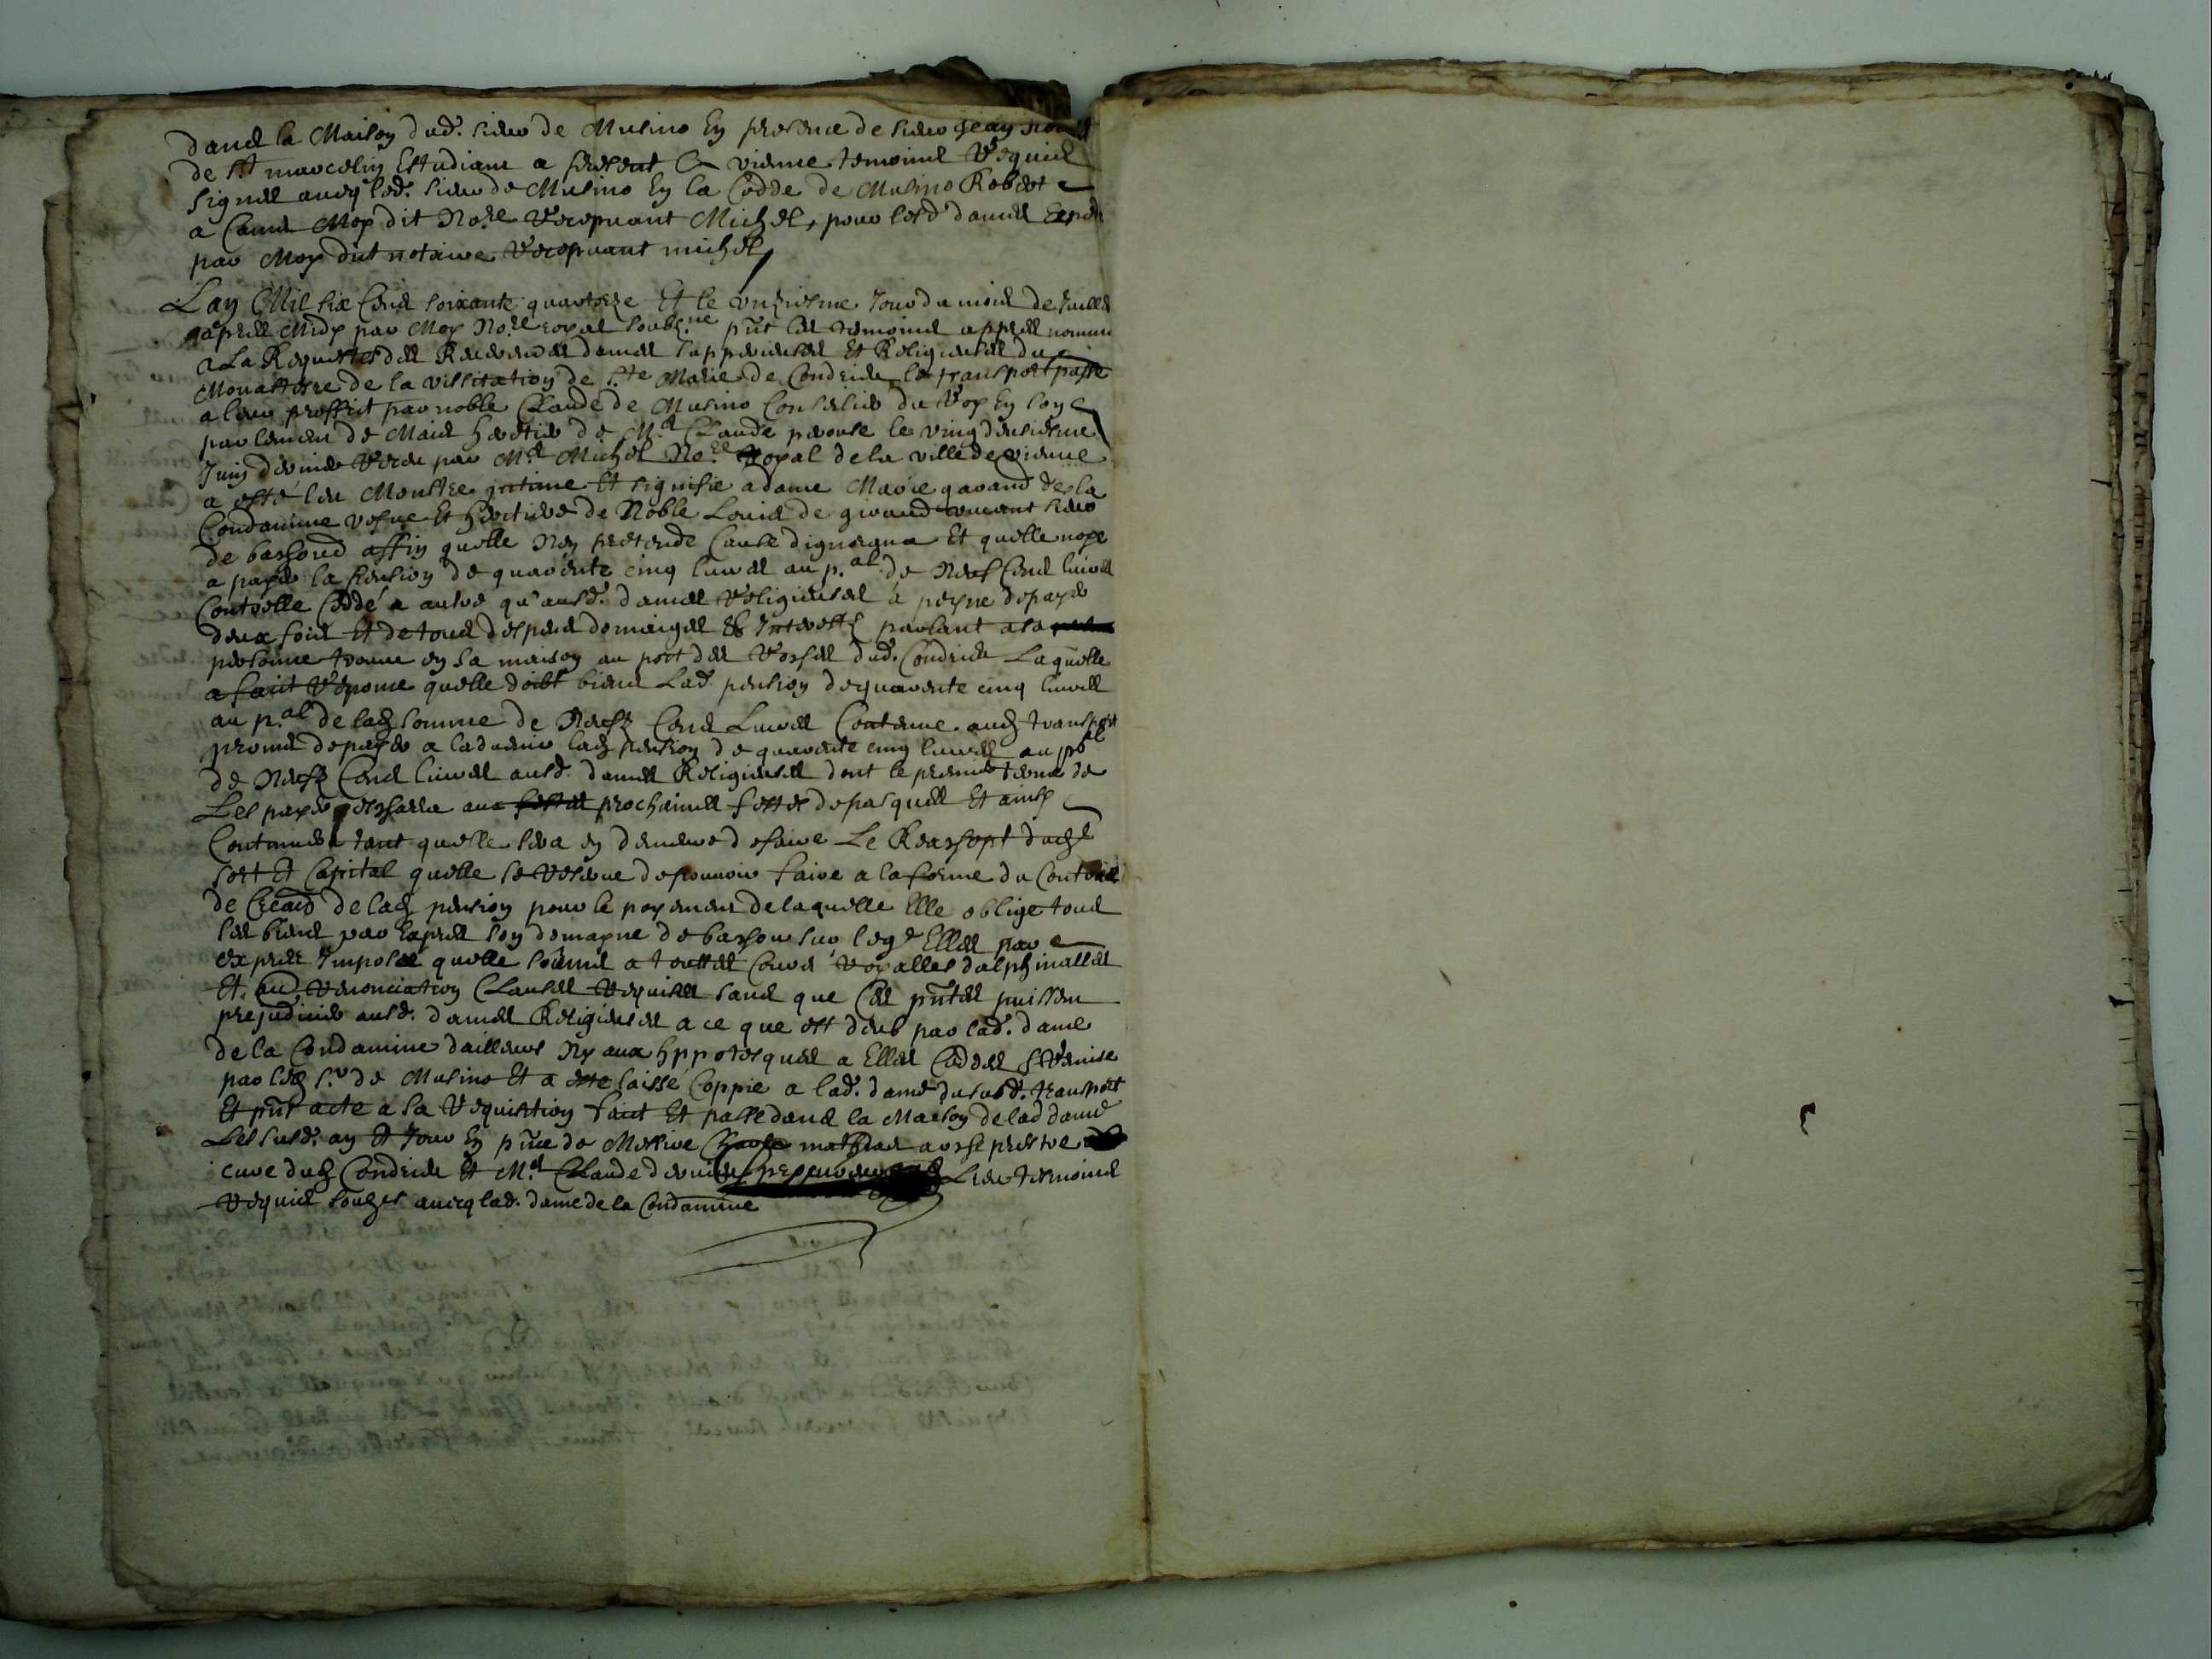 dans la Maison dud. sieur de Musino En presence de sieur Jean
de st marcelin Estudiant a present A vienne temoins Requis
signes avecq led. sieur de Musino En la Cedde de Musino Robert
a Canue Moy dit No.re Recepvant Michel, pour lesd dames Expedié
par Moy dict notaire Recepvant michel
Lan Mil six Cens soixante quatorze Et le unziesme Jour du mois de Juillet
apres Midy par Moy No.re royal soubs.ne pnt les temoins appres nommes
A La Requestes des Reverendes dames supperieures Et Religieuses du
Monastere de la vissitation de s.te Marie de Condrieu le transport passe
a leur proffict par noble Claude de Musino Conselier du Roy En son
parlement de heretier de M.e Claude perouse le vingdeusiesme
Juin dernier Receu par M.e Michel No.re Royal de la ville de vienne
a esté leu Monstre jntime Et signifie a dame Marie gavand de la
Condamine vefve Et heretiere de Noble Louis de giraud vivant sieur
de bassond affin quelle Nen pretende Cause dignorance Et quelle naye
a payer la pension de quarente cinq livres au p.al de Neuf Cens livres
Contrelle Ceddé a autre qu'ausd. dames Religieuses a peyne de payer
deux fois Et de tous despens domaiges Et Interestz parlant a sa
personne trouve en sa maison au port des Roches dud. Condrieu Laquelle
a faict Reponse quelle doibt biens Lad. pension de quarente cinq livres
au p.al de lad. somme de Neufz Cens Livres Contenue aud. transport
promis de payer a ladvenir lad. pension de quarente cinq livres au p.al
de Neufz Cens livres ausd. dames Religieuses dont le premier terme de
Les payer aux festes prochaines festes de pasques Et ainsy
Continuer tant quelle sera en demeure de faire Le Reachept dud.
sort Et Capital quelle se Reserve de pouvoir faire a la forme du Contract
de Creaon de lad. pension pour le payement de laquelle Elle oblige tous
ses biens par Expres son domayne de bassou sur leq.l Elles par
expres Imposee quelle soumis a touttes Cours Royalles dalphinalles
Et aud Renonciation Clauses Requises sans que Ces pntes puissent
prejudicier ausd. dames Religieuses a ce que est deub par lad. dame
de la Condamine dailleurs Ny aux hyppotesques a Elles Ceddes
par led. s.r de Musino Et a este laisse Coppie a lad. dame du susd. transport
Et pnt acte a sa Requisition faict Et passe dans la Maison de lad dame
Les susd. an Et Jour En pnce de Messire mathieu prestre
cure dud. Condrieu Et M.e Claude Les temoins
Requis soubs.es avecq lad. dame de la Condamine